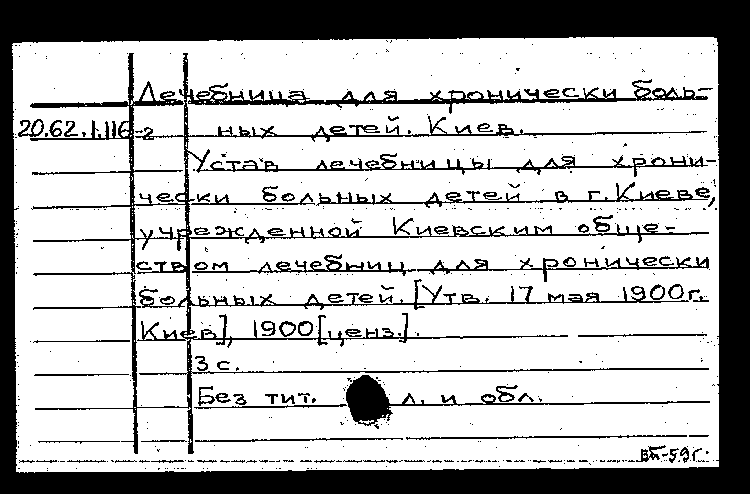 Лечебница для хронически боль-
20.62.1.116-2 ных детей. Киев.
Устав лечебницы для хрони-
чески больных детей в г. Киеве,
учрежденной Киевским обще-
ством лечебниц для хронически
больных детей. [Утв. 17 мая 1900г.
Киев], 1900 [ценз.].
3 с.
Без тит. л. и обл.
ВП-59г.